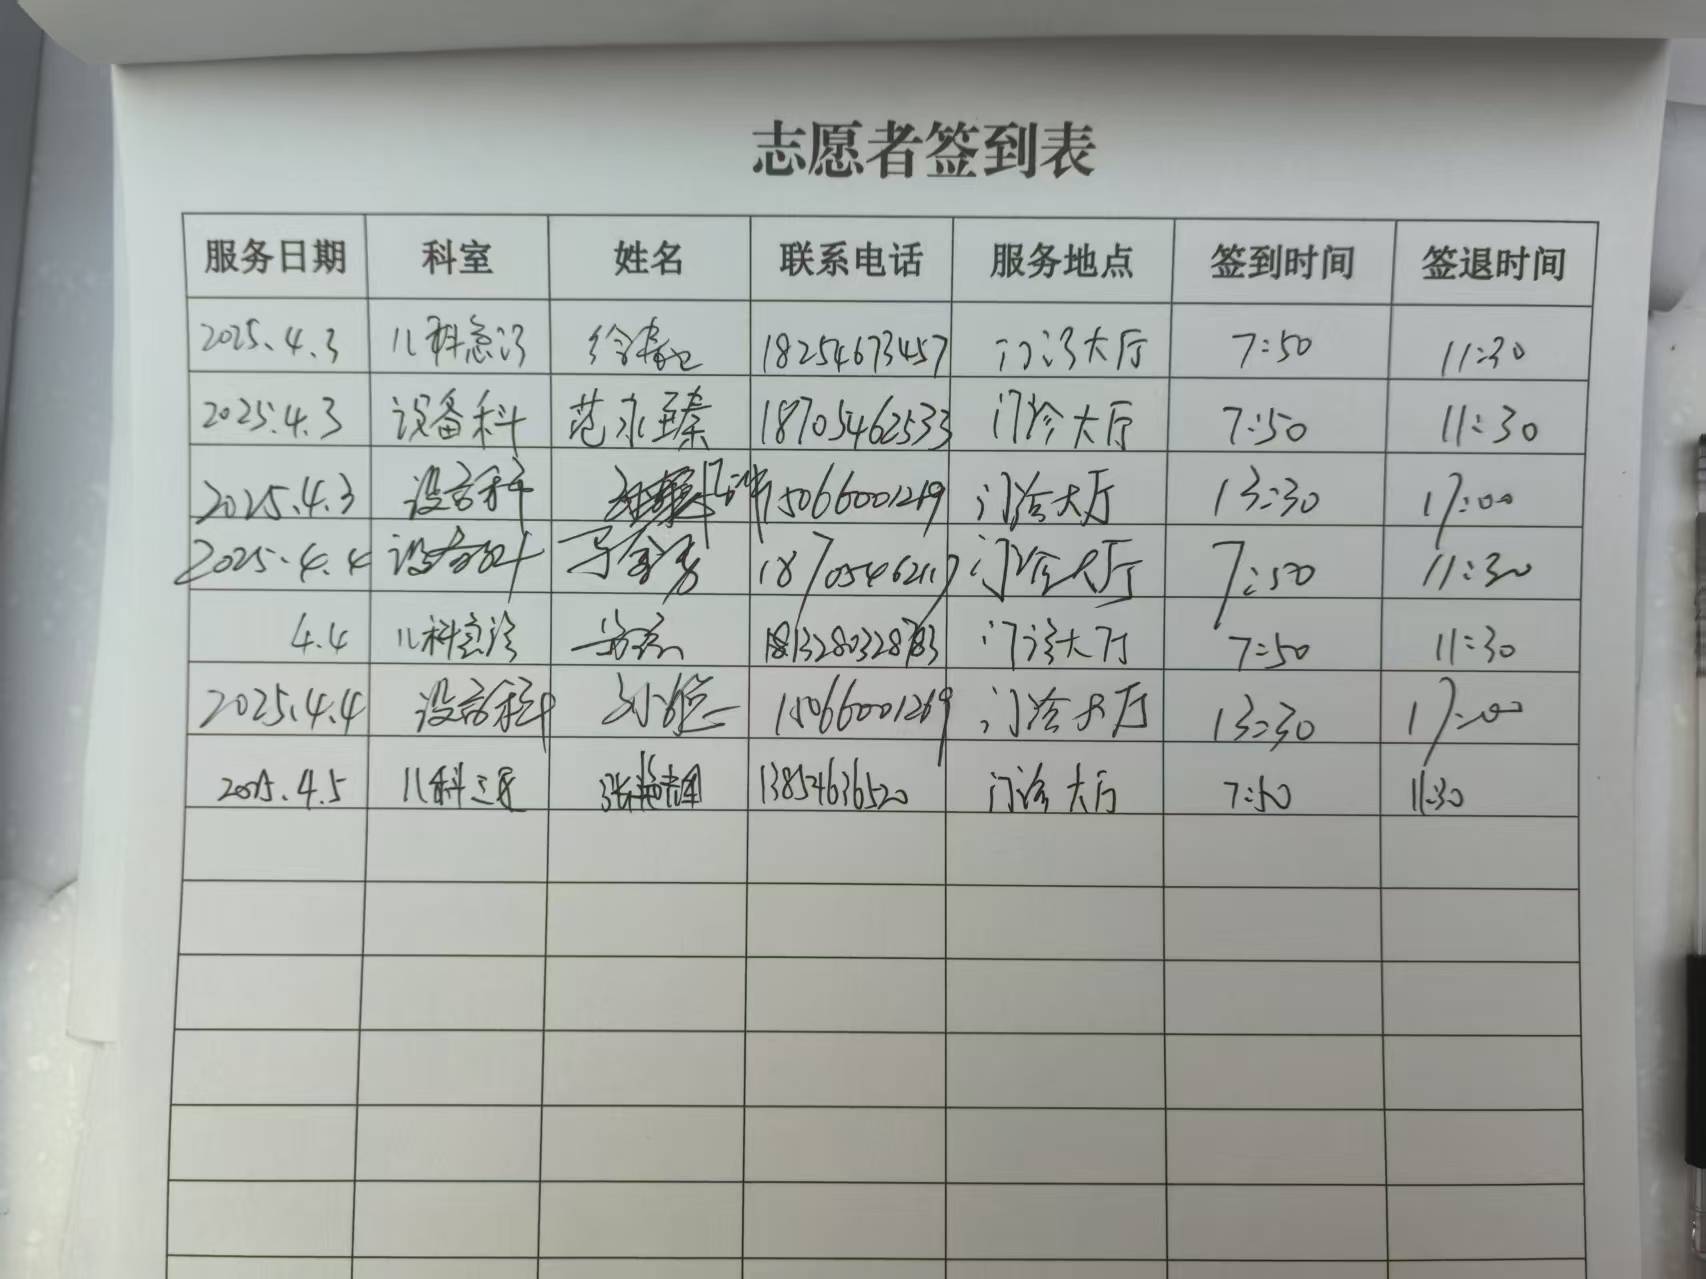 志愿者签到表
服务日期 科室 姓名 联系电话 服务地点 签到时间 签退时间
2025.4.3 儿科急诊 18254673457 门诊大厅 7:50 11:30
2025.4.3 设备科 范永臻 18705462533 门诊大厅 7:50 11:30
2025.4.3 设备科 门诊大厅 13:30 17:00
2025.4.4 设备科 门诊大厅 7:50 11:30
4.4 儿科急诊 门诊大厅 7:50 11:30
2025.4.4 设备科 15066001269 门诊大厅 13:30 17:00
2025.4.5 儿科三区 13854636520 门诊大厅 7:50 11:30